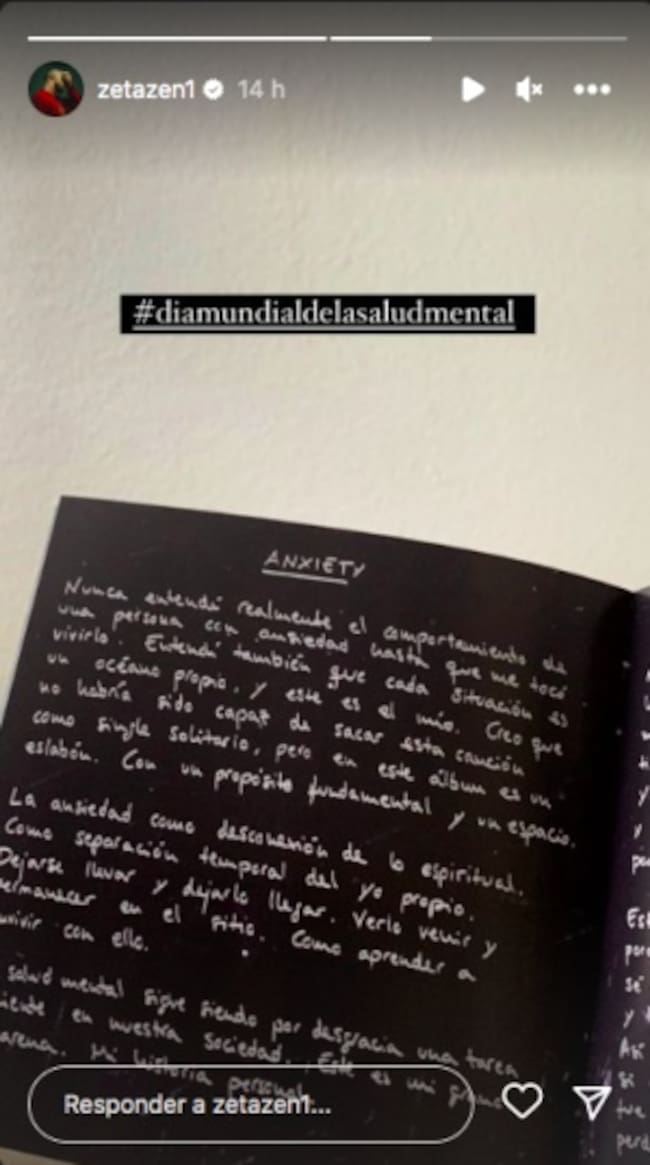 zetazen1 14 h
#diamundialdelasaludmental
ANXIETY
Nunca entendí realmente el comportamiento de
una persona con ansiedad hasta que me tocó
vivirlo. Entendí también que cada situación es
un océano propio, y este es el mío. Creo que
no habría sido capaz de sacar esta canción
como single solitario, pero en este álbum es un
eslabón. Con un propósito fundamental y un espacio.
La ansiedad como desconexión de lo espiritual.
Como separación temporal del yo propio.
Dejarse llevar y dejarlo llegar. Verlo venir y
permanecer en el sitio. Como aprender a
vivir con ello.
salud mental sigue siendo por desgracia una tarea
en nuestra sociedad. Este es mi grano
arena. Mi historia personal.
Est
sé
y t
Así
si
perd
Responder a zetazen1...